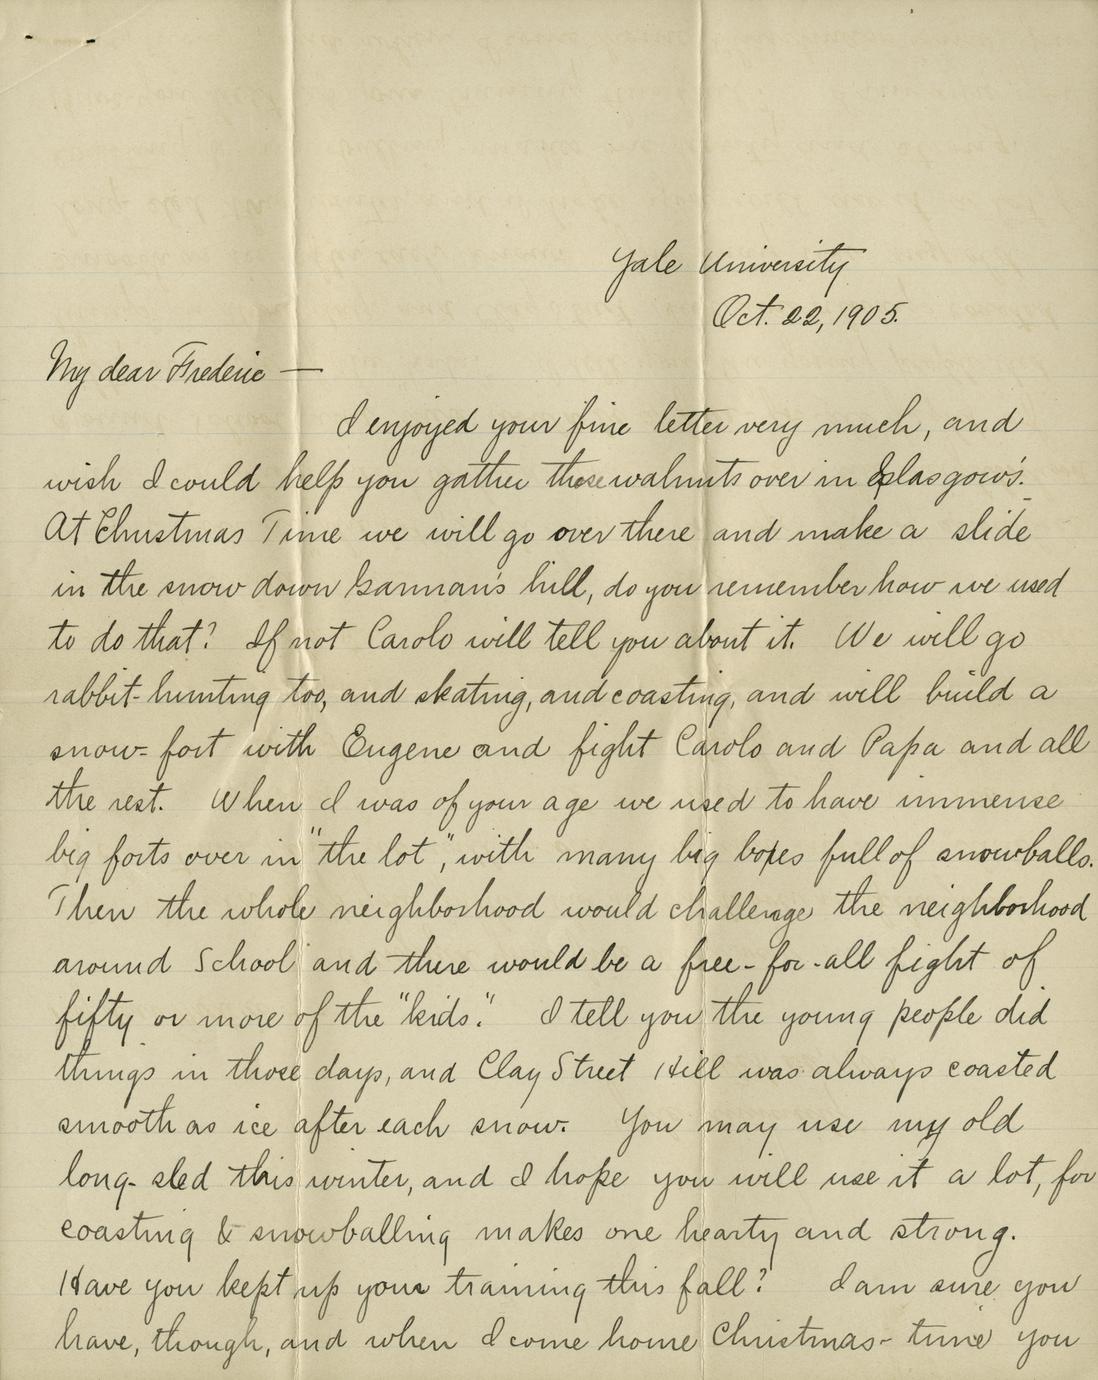 Yale University
Oct. 22, 1905.
My dear Frederic —
I enjoyed your fine letter very much, and
wish I could help you gather those walnuts over in Glasgow's.
At Christmas Time we will go over there and make a slide
in the snow down Garman's hill, do you remember how we used
to do that? If not Carolo will tell you about it. We will go
rabbit-hunting too, and skating, and coasting, and will build a
snow-fort with Eugene and fight Carolo and Papa and all
the rest. When I was of your age we used to have immense
big forts over in "the lot", with many big boxes full of snowballs.
Then the whole neighborhood would challenge the neighborhood
around School and there would be a free-for-all fight of
fifty or more of the "kids." I tell you the young people did
things in those days, and Clay Street Hill was always coasted
smooth as ice after each snow. You may use my old
long-sled this winter, and I hope you will use it a lot, for
coasting & snowballing makes one hearty and strong.
Have you kept up your training this fall? I am sure you
have, though, and when I come home Christmas-time you